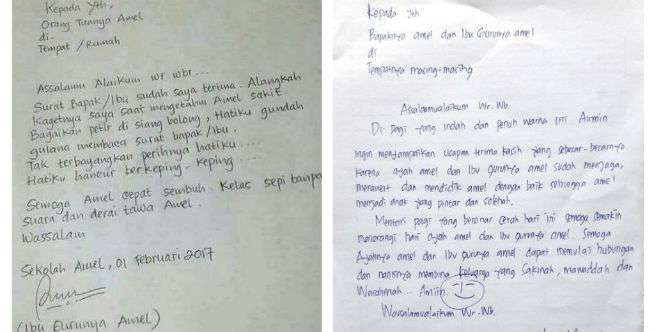 Kepada Yth,
Orang Tuanya Amel
di-
Tempat / Rumah
Assalamu Alaikum wr wbr...
Surat Bapak/Ibu sudah saya terima. Alangkah
kagetnya saya saat mengetahui Amel sakit
Bagaikan petir di siang bolong, Hatiku gundah
gulana membaca surat bapak/Ibu.
Tak terbayangkan perihnya hatiku...
Hatiku hancur berkeping-keping...
Semoga Amel cepat sembuh. Kelas sepi tanpa
suara dan derai tawa Amel.
Wassalam
Sekolah Amel, 01 Februari 2017
(Ibu Gurunya Amel)
Kepada Yth
Bapaknya amel dan Ibu Gurunya amel
di
Tempatnya masing-masing
Assalamualaikum Wr. Wb.
Di pagi yang indah dan penuh warna ini
ingin menyampaikan ucapan terima kasih yang sebesar-besarnya
karena ayah amel dan Ibu gurunya amel sudah menjaga,
merawat dan mendidik amel dengan baik sehingga amel
menjadi anak yang pintar dan solehah.
Mentari pagi yang bersinar cerah hari ini semoga semakin
menerangi hari ayah amel dan Ibu gurunya amel. Semoga
Ayahnya amel dan Ibu gurunya amel dapat memulai hubungan
dan nantinya membina keluarga yang Sakinah, mawaddah dan
Warahmah... Amiin
Wassalamualaikum Wr. Wb.